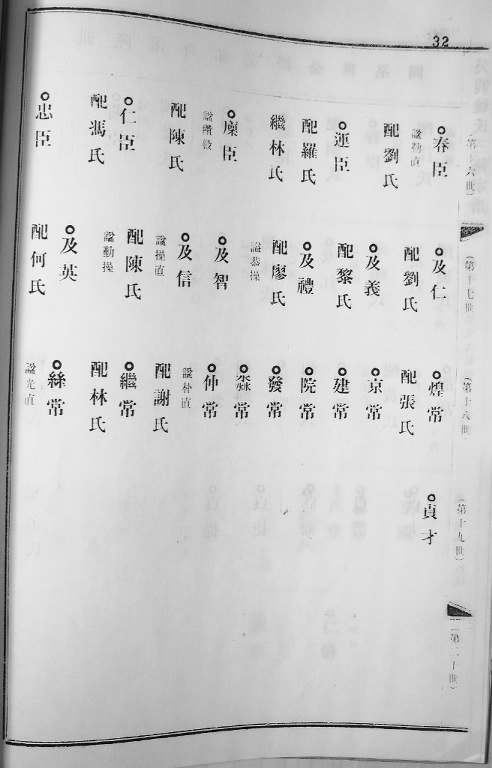 32
(第十六世)
春臣
諡勤直
配劉氏
運臣
配羅氏
繼林氏
糜臣
配陳氏
仁臣
配馮氏
忠臣
(第十七世)
及仁
配劉氏
及義
配黎氏
及禮
配廖氏
諡慕操
及智
及信
諡操直
配陳氏
諡勤操
及英
配何氏
(第十八世)
煌常
配張氏
京常
建常
院常
發常
常
仲常
諡朴直
配謝氏
繼常
配林氏
絲常
諡光直
(第十九世)
貞才
(第二十世)